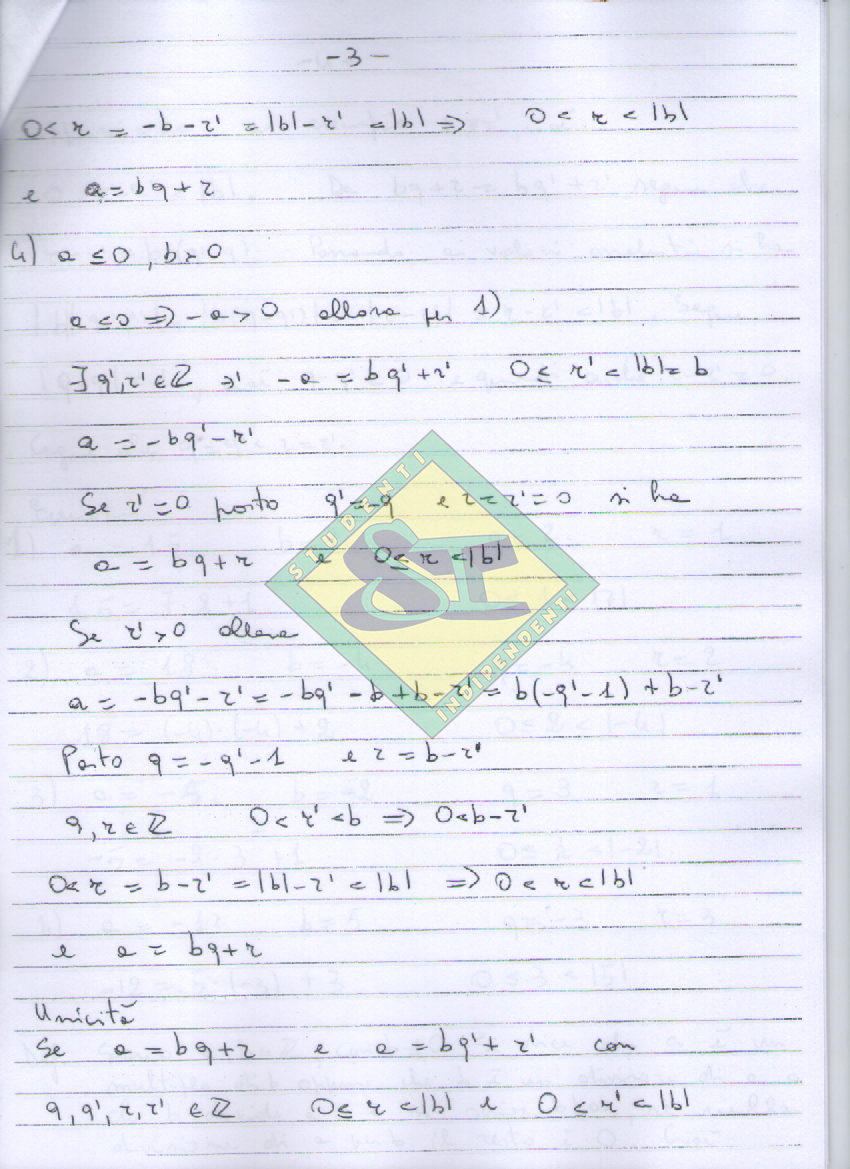 -3-
0 < r = -b - r' = |b| - r' < |b| ⇒ 0 < r < |b|
e a = bq + r
4) a ≤ 0, b > 0
a ≤ 0 ⇒ -a > 0 allora per 1)
∃ q', r' ∈ ℤ ∋' -a = bq' + r' 0 ≤ r' < |b| = b
a = -bq' - r'
Se r' = 0 posto q' = -q e r = r' = 0 si ha
a = bq + r e 0 ≤ r < |b|
Se r' > 0 allora
a = -bq' - r' = -bq' - b + b - r' = b(-q' - 1) + b - r'
Posto q = -q' - 1 e r = b - r'
q, r ∈ ℤ 0 < r' < b ⇒ 0 < b - r'
0 < r = b - r' = |b| - r' < |b| ⇒ 0 < r < |b|
e a = bq + r
Unicità
Se a = bq + r e a = bq' + r' con
q, q', r, r' ∈ ℤ 0 ≤ r < |b| e 0 ≤ r' < |b|
STUDENTI
INDIPENDENTI